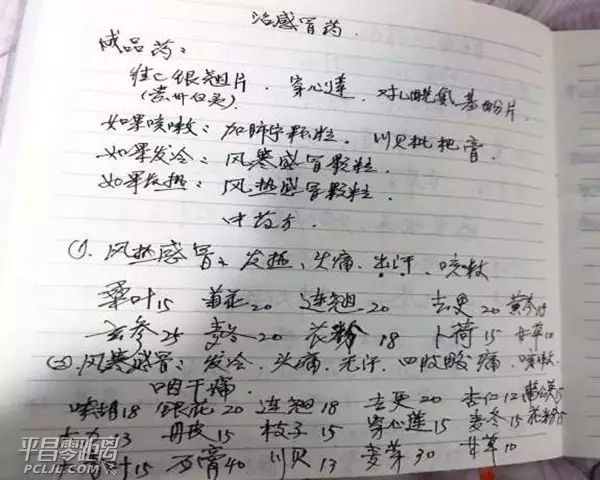 治感冒药.
成品药:
维C银翘片. 穿心莲. 对乙酰氨基酚片.
(贵州百灵)
如果咳嗽: 加肺宁颗粒. 川贝枇杷膏.
如果发冷: 风寒感冒颗粒.
如果发热: 风热感冒颗粒.
中药方.
①. 风热感冒: 发热、头痛. 出汗. 咳嗽
桑叶15 菊花20 连翘20 去更20 黄芩
玄参25 麦冬20 花粉18 卜荷15 甘草10
② 风寒感冒: 发冷. 头痛. 无汗. 四肢酸痛. 咳嗽.
咽干痛.
柴胡18 银花20 连翘18 去更20 杏仁12
13 丹皮15 枝子15 穿心莲15 麦冬15 花粉15
15 石膏40 川贝13 麦芽30 甘草10
平昌零距离
PCLJL.COM